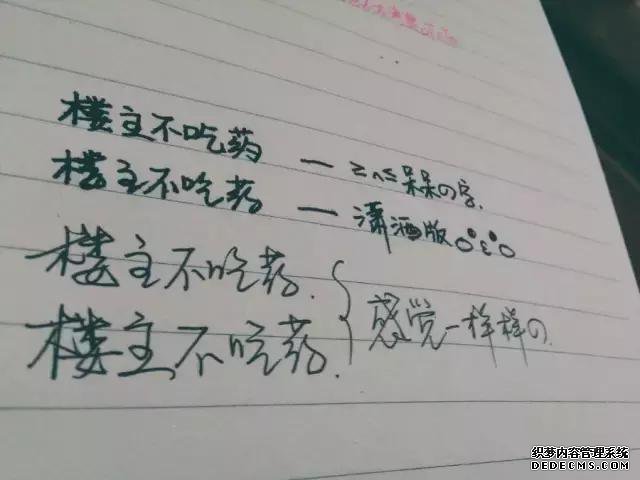 楼主不吃药 — ≥∧≤呆呆の字.
楼主不吃药 — 潇洒版
楼主不吃药.
楼主不吃药.
感觉一样样の
织梦内容管理系统
DEDECMS.COM